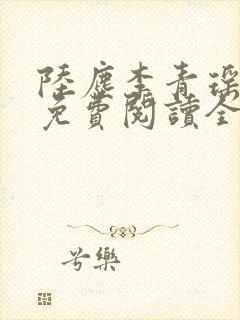 陸塵李青瑤
免費閱讀全
兮樂